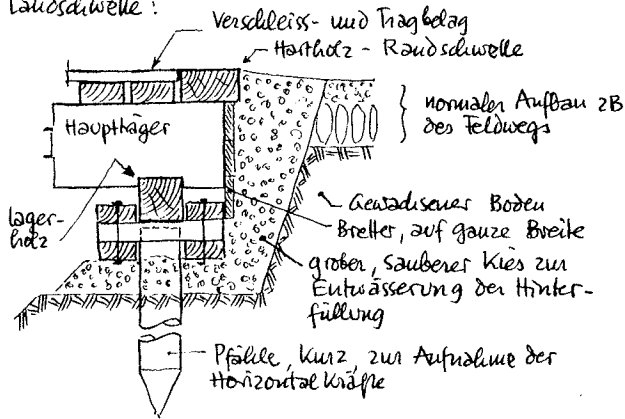 Landschwelle:
Verschleiss- und Tragbelag
Hartholz - Randschwelle
Hauptträger
normaler Aufbau zB
des Feldwegs
Lager-
holz
Gewachsener Boden
Bretter, auf ganze Breite
grober, sauberer Kies zur
Entwässerung der Hinter-
füllung
Pfähle, kurz, zur Aufnahme der
Horizontalkräfte